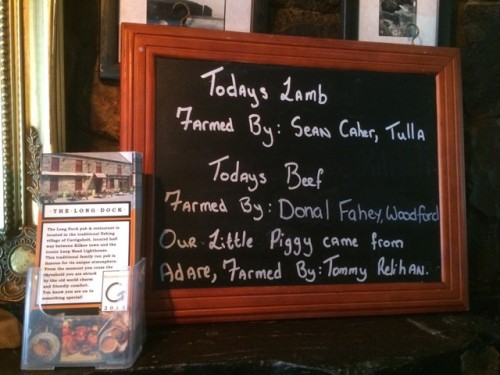 Todays Lamb
Farmed By: Sean Caher, Tulla
Todays Beef
Farmed By: Donal Fahey, Woodford
Our Little Piggy came from
Adare, Farmed By: Tommy Relihan.
·THE·LONG DOCK·
The Long Dock pub & restaurant is
located in the traditional fishing
village of Carrigaholt, located half
way between Kilkee town and the
iconic Loop Head Lighthouse.
This traditional family run pub is
famous for its unique atmosphere.
From the moment you cross the
threshold you are struck
by the old world charm
and friendly comfort.
You know you are on to
something special!
G